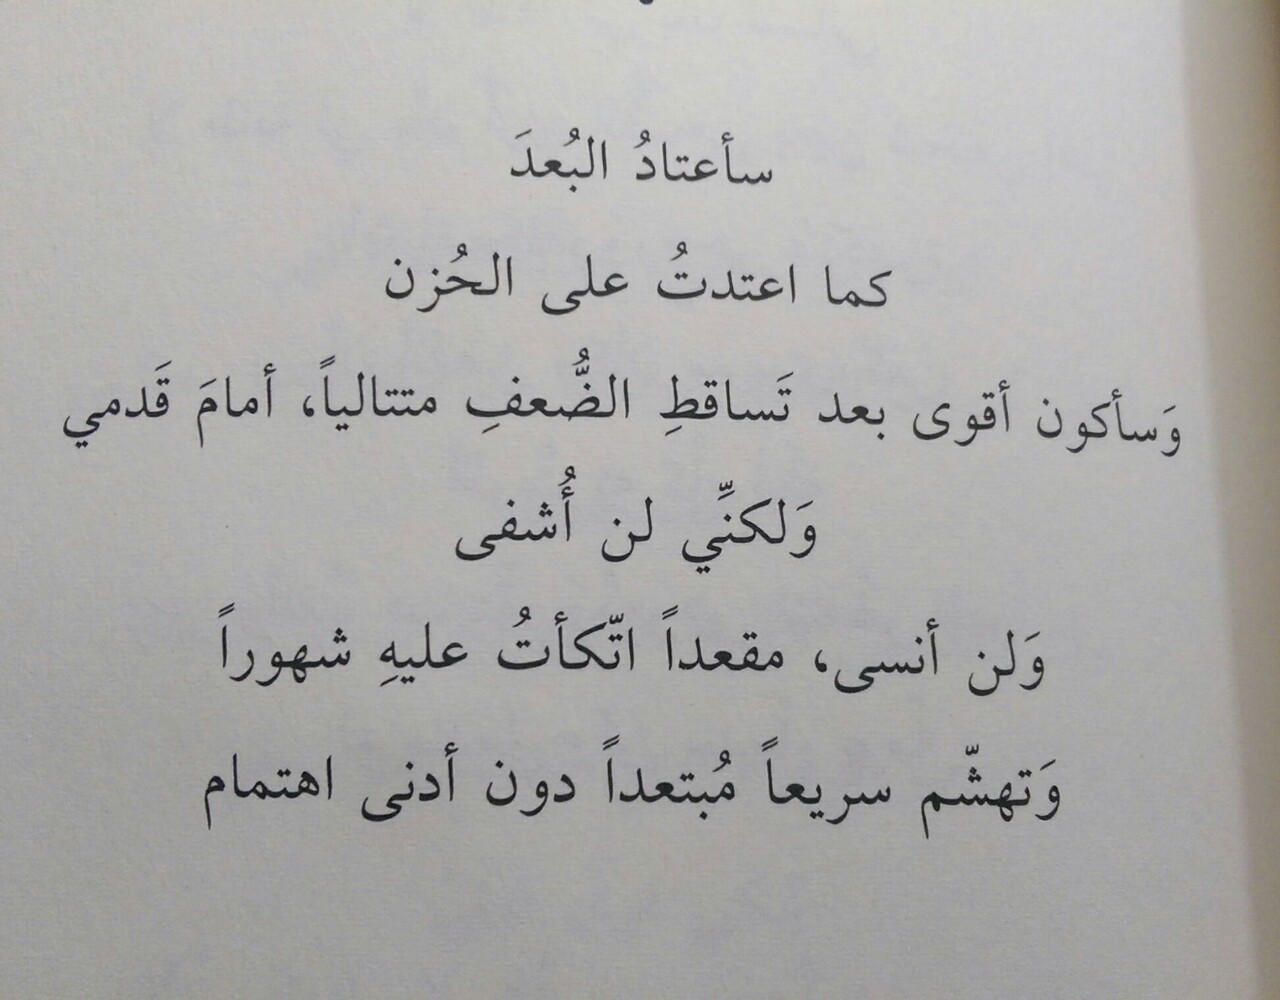 سأعتادُ البُعدَ
كما اعتدتُ على الحُزن
وَسأكون أقوى بعد تَساقطِ الضُّعفِ متتالياً، أمامَ قَدمي
وَلكنِّي لن أُشفى
وَلن أنسى، مقعداً اتّكأتُ عليهِ شهوراً
وَتهشّم سريعاً مُبتعداً دون أدنى اهتمام